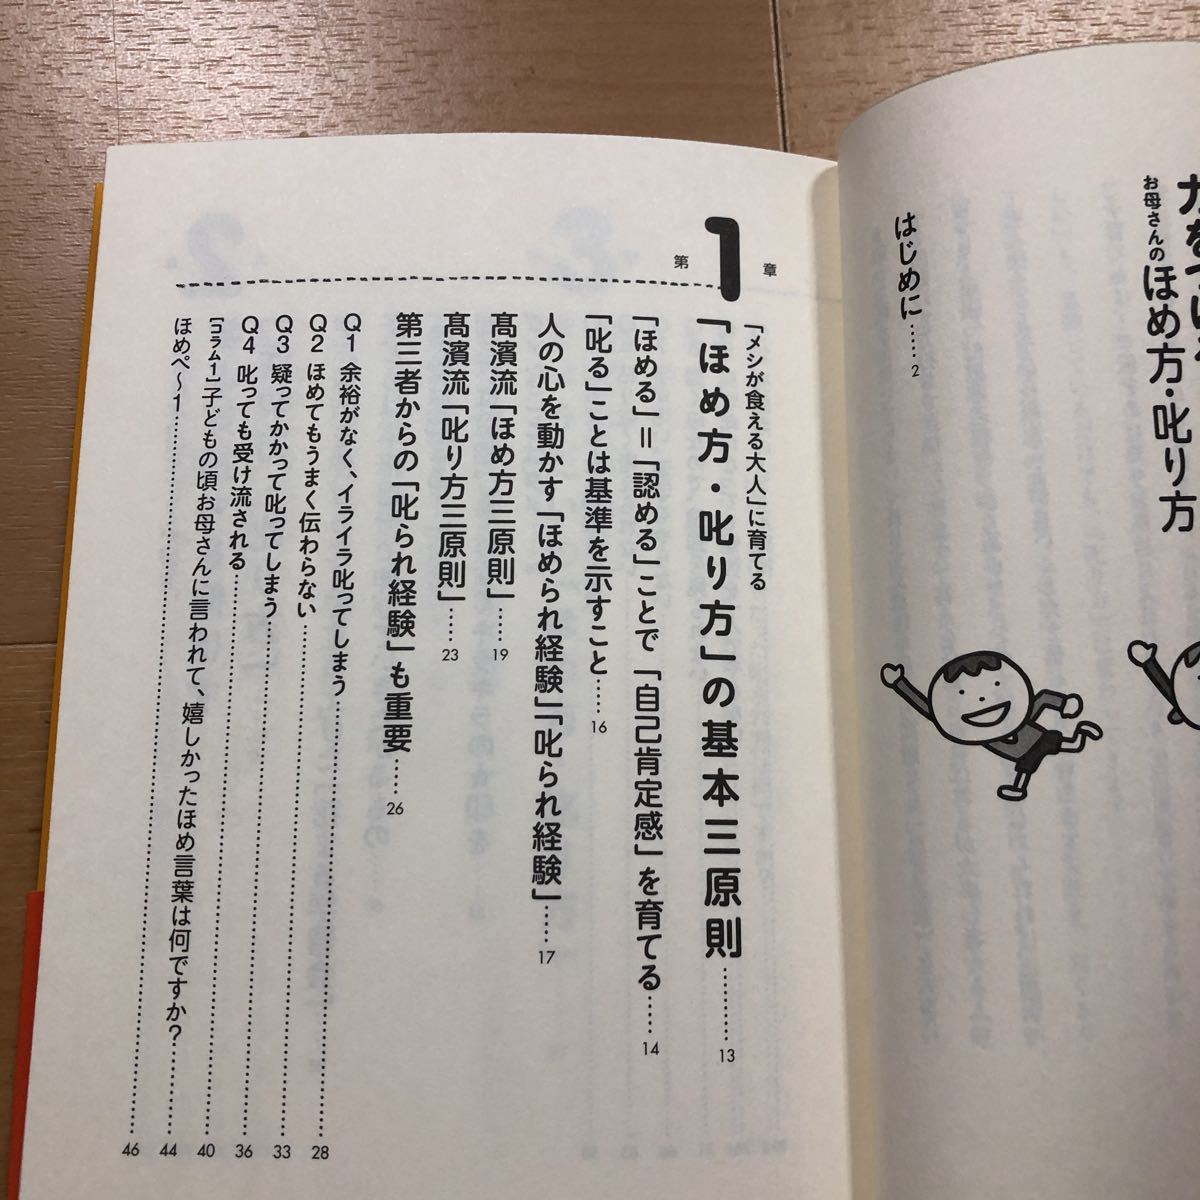 お母さんのほめ方・叱り方
はじめに……2
第1章
「メシが食える大人」に育てる
「ほめ方・叱り方」の基本三原則……13
「ほめる」=「認める」ことで「自己肯定感」を育てる……14
「叱る」ことは基準を示すこと……16
人の心を動かす「ほめられ経験」「叱られ経験」……17
髙濱流「ほめ方三原則」……19
髙濱流「叱り方三原則」……23
第三者からの「叱られ経験」も重要……26
Q1 余裕がなく、イライラ叱ってしまう……28
Q2 ほめてもうまく伝わらない……33
Q3 疑ってかかって叱ってしまう……36
Q4 叱っても受け流される……40
[コラム1]子どもの頃お母さんに言われて、嬉しかったほめ言葉は何ですか?……44
ほめぺ〜1……46